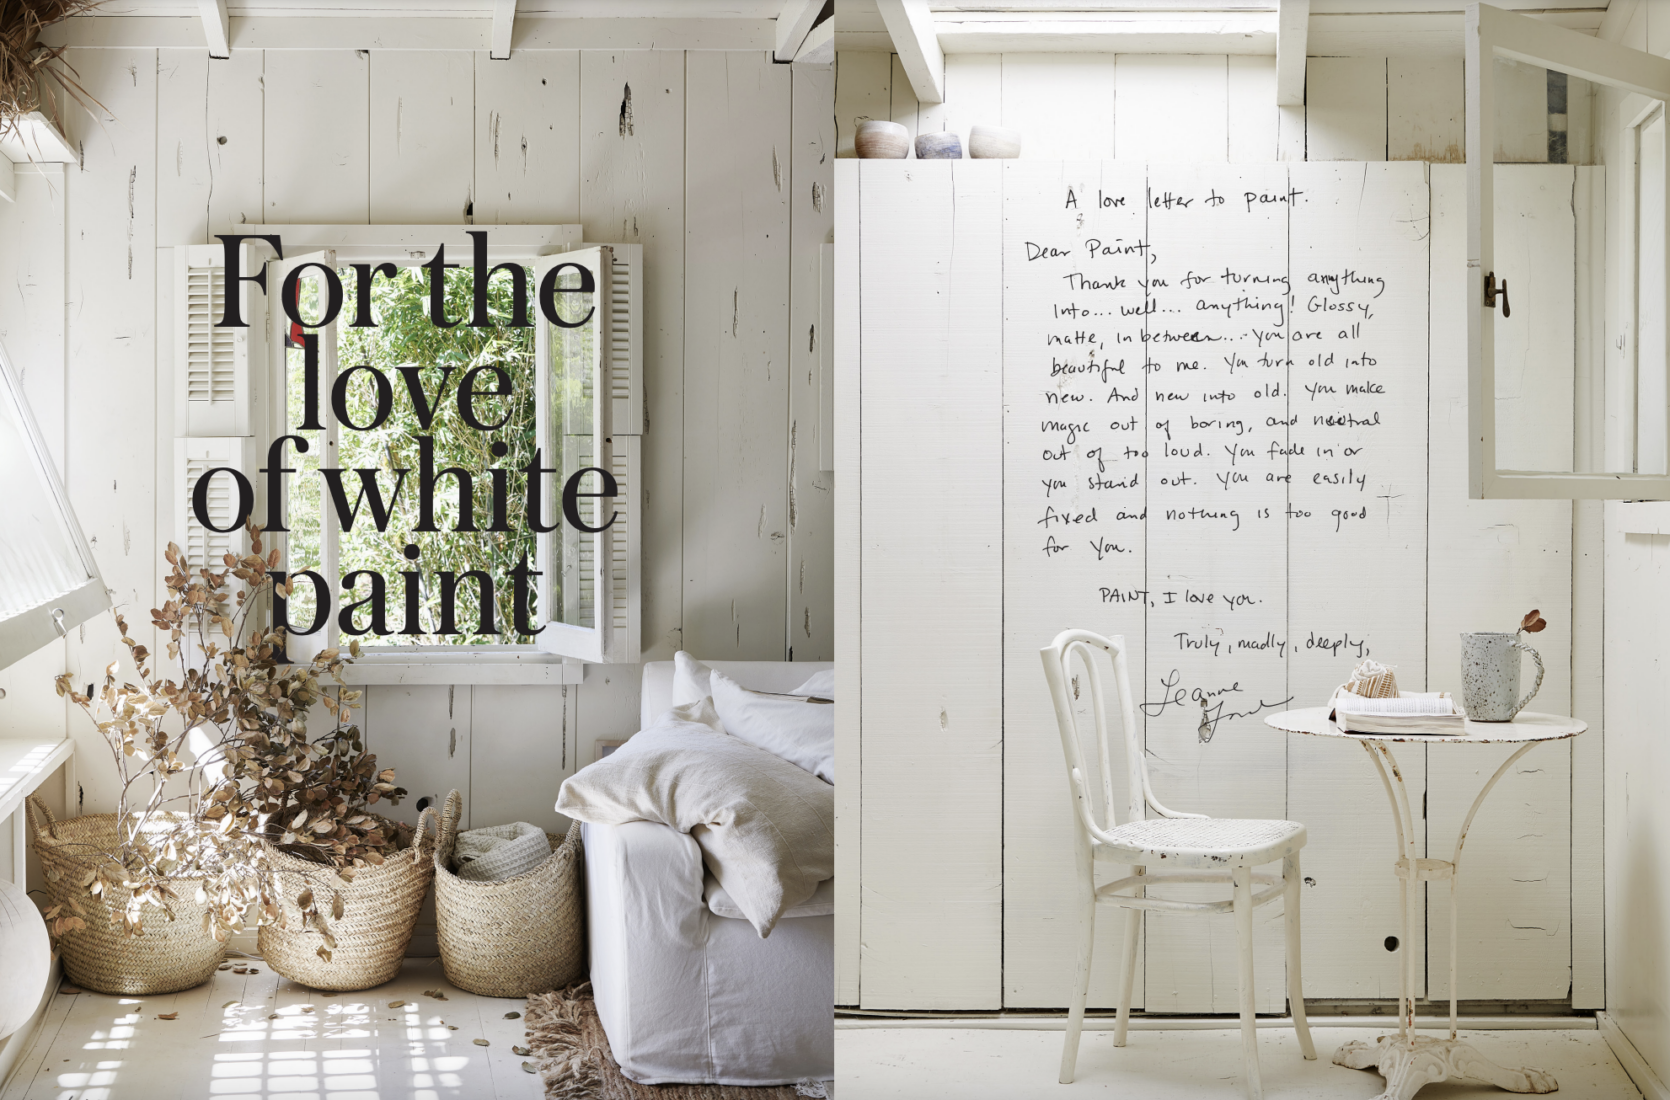 For the
love
of white
paint
A love letter to paint.
Dear Paint,
Thank you for turning anything
into... well... anything! Glossy,
matte, in between... you are all
beautiful to me. You turn old into
new. And new into old. You make
magic out of boring, and neutral
out of too loud. You fade in or
you stand out. You are easily
fixed and nothing is too good
for you.
PAINT, I love you.
Truly, madly, deeply,
Leanne
Ford